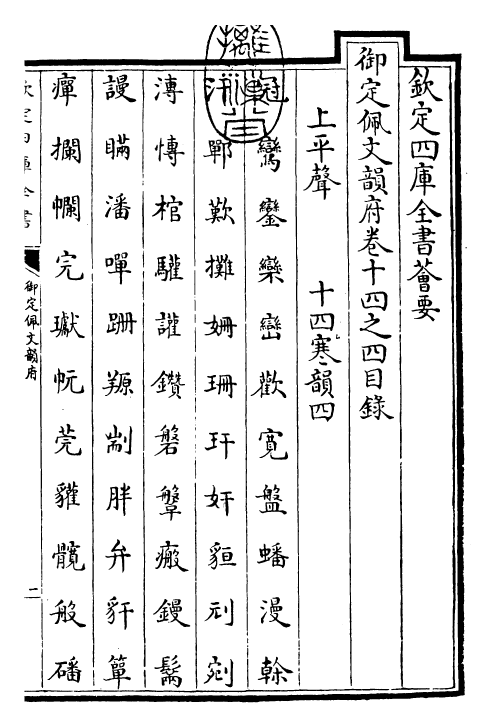 欽定四庫全書薈要
御定佩文韻府卷十四之四目錄
上平聲 十四寒韻四
冠鸞鑾欒巒歡寬盤蟠漫幹
鄲歎攤姍珊玕奸貆刓剜
漙慱棺驩讙鑽磐鞶瘢鏝鬗
謾瞞潘嘽跚羱剬胖弁豻簞
癉攔幱完瓛岏莞貛髖般磻
欽定四庫全書
御定佩文韻府
二